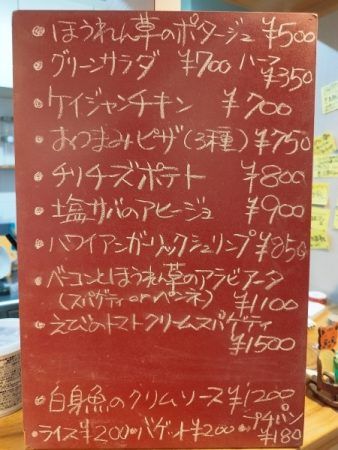 ・ほうれん草のポタージュ ¥500
・グリーンサラダ ¥700 ハーフ ¥350
・ケイジャンチキン ¥700
・おつまみピザ(3種) ¥750
・チリチーズポテト ¥800
・塩サバのアヒージョ ¥900
・ハワイアンガーリックシュリンプ ¥850
・ベーコンとほうれん草のアラビアータ
(スパゲティorペンネ) ¥1100
・えびのトマトクリームスパゲティ
¥1500
・白身魚のクリームソース ¥1200
・ライス¥200・バゲット¥200・プチパン
¥180